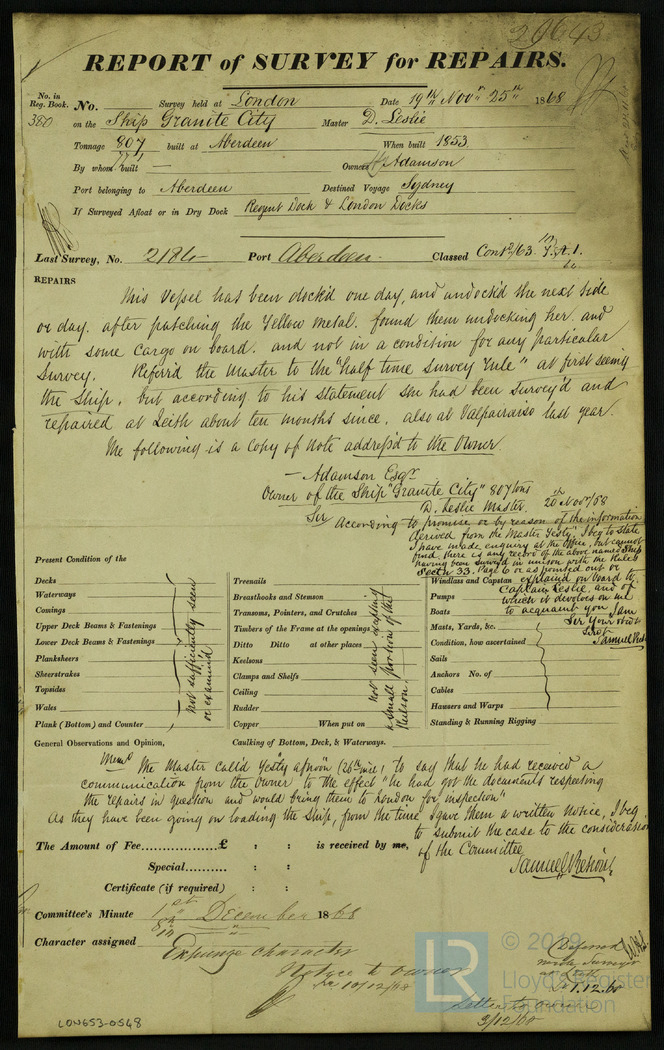 29643
REPORT of SURVEY for REPAIRS.
No. in Reg. Book. No. Survey held at London Date 19th Novr 25th 1868
380 on the Ship Granite City Master D. Leslie
Tonnage 807 built at Aberdeen When built 1853
771
By whom built — Owners Adamson
Port belonging to Aberdeen Destined Voyage Sydney
If Surveyed Afloat or in Dry Dock Regent Dock & London Docks
Last Survey, No. 2184 Port Aberdeen Classed Contd/63. A.1.
REPAIRS
This Vessel has been dock'd one day, and undock'd the next tide
or day. after patching the Yellow metal. found them undocking her. and
with some Cargo on board. and not in a condition for any particular
Survey. Referr'd the Master to the "half time Survey rule" at first seeing
the Ship, but according to his statement she had been Survey'd and
repaired at Leith about ten months since. also at Valparaiso last year.
The following is a copy of Note address'd to the Owner.
— Adamson Esqr
Owner of the Ship "Granite City" 807 tons
D. Leslie Master. 20th Novr/68
Sir According to promise or by reason of the information
derived from the Master Yesty, I beg to State
I have made enquiry at the Office, but cannot
find there is any record of the above named Ship
having been Survey'd in unison with the Rule
Sectn 33. Page 6 or as pointed out or
explained on board to
Captain Leslie, and of
which it devolves on me
to acquaint you I am
Sir Your obdt
Servt
Samuel
Present Condition of the
Decks
Waterways
Comings
Upper Deck Beams & Fastenings
Lower Deck Beams & Fastenings
Planksheers
Sheerstrakes
Topsides
Wales
Plank (Bottom) and Counter
not sufficiently seen
or examined
Treenails
Breasthooks and Stemson
Transoms, Pointers, and Crutches
Timbers of the Frame at the openings
Ditto Ditto at other places
Keelsons
Clamps and Shelfs
Ceiling
Rudder
Copper When put on
not seen excepting
a small portion of the
Kelson.
Windlass and Capstan
Pumps
Boats
Masts, Yards, &c.
Condition, how ascertained
Sails
Anchors No. of
Cables
Hausers and Warps
Standing & Running Rigging
General Observations and Opinion, Caulking of Bottom, Deck, & Waterways.
Memo The Master call'd Yesty afnoon (26th inst) to say that he had received a
communication from the Owner to the effect "he had got the documents respecting
the repairs in question and would bring them to London for inspection"
As they have been going on loading the Ship, from the time I gave them a written notice, I beg
to submit the case to the consideration
of the Committee
Samuel
The Amount of Fee £ : : is received by me,
Special : :
Certificate (if required) : :
Committee's Minute 1st December 1868
8th "
Character assigned Expunge character
Notice to owner
10/12/68
Deferred
Surveyor
at Leith
1.12.68
Letter to owner
3/12/68
LON653-0548
LR
© 2019
Lloyd's Register
Foundation